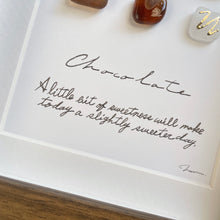 Chocolate
A little bit of sweetness will make
today a slightly sweeter day.